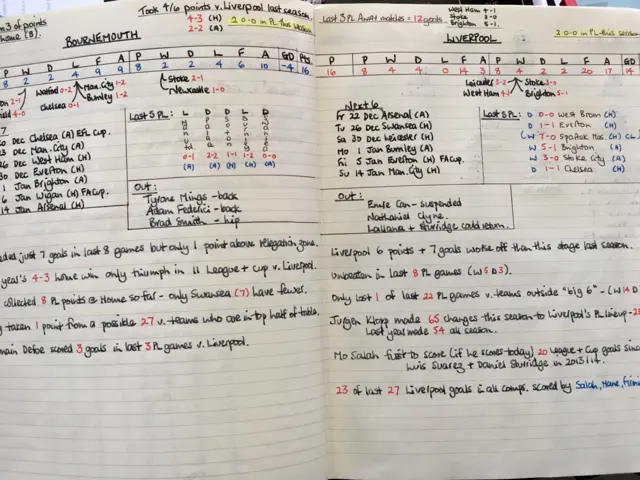 m 3 of points
home (8).
Took 4/6 points v. Liverpool last season.
4-3 (H)
2-2 (A)
2 0-0 in PL this season
BOURNEMOUTH
P W D L F A P W D L F A GD Pts
8 2 2 4 9 9 8 2 2 4 6 10 -4 16
Watford 0-2
Man. City 1-2
Chelsea 0-1
Burnley 1-2
Stoke 2-1
Newcastle 1-0
Dec Chelsea (A) EFL Cup.
Dec Man. City (A)
Dec West Ham (H)
Dec Everton (H)
1 Jan Brighton (A)
Jan Wigan (H) FA Cup.
14 Jan Arsenal (H)
Last 5 PL:
L D D L D
0-1 2-2 1-1 1-2 0-0
(A) (H) (H) (A) (A)
Out:
Tyrone Mings - back
Adam Federici - back
Brad Smith - hip
just 7 goals in last 8 games but only 1 point above relegation zone.
year's 4-3 home win only triumph in 11 League + Cup v. Liverpool.
collected 8 PL points @ Home so far - only Swansea (7) have fewer.
taken 1 point from a possible 27 v. teams who are in top half of table.
Defoe scored 3 goals in last 3 PL games v. Liverpool.
Last 3 PL AWAY matches = 12 goals
West Ham 4-1
Stoke 3-0
Brighton 5-1
2 0-0 in PL this season
LIVERPOOL
P W D L F A P W D L F A GD
16 8 4 4 0 14 3 8 4 2 2 20 17 14
Leicester 3-2
West Ham 4-1
Stoke 3-0
Brighton 5-1
Next 6
Fr 22 Dec Arsenal (A)
Tu 26 Dec Swansea (H)
Sa 30 Dec Leicester (H)
Mo 1 Jan Burnley (A)
Fri 5 Jan Everton (H) FA Cup.
Su 14 Jan Man. City (H)
Last 6 PL:
D 0-0 West Brom (H)
D 1-1 Everton (H)
W 7-0 Spartak Mos (H)
W 5-1 Brighton (A)
W 3-0 Stoke City (A)
D 1-1 Chelsea (H)
Out:
Emre Can - suspended
Nathaniel Clyne.
Lallana + Sturridge could return.
Liverpool 6 points + 7 goals worse off than this stage last season.
Unbeaten in last 8 PL games (W5 D3).
Only lost 1 of last 22 PL games v. teams outside "big 6" - (W14 D
Jurgen Klopp made 65 changes this season to Liverpool's PL lineup -
Last year made 54 all season.
Mo Salah first to score (if he scores today) 20 League + Cup goals since
Luis Suarez + Daniel Sturridge in 2013/14.
23 of last 27 Liverpool goals in all comps. scored by Salah, Mane, Firmi